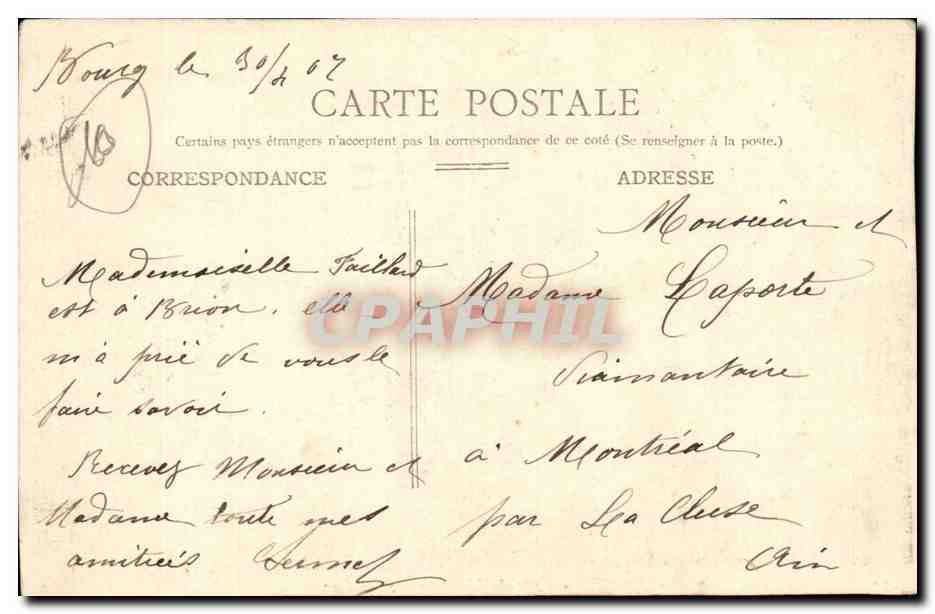 Bourg le 30/4 07
CARTE POSTALE
Certains pays étrangers n'acceptent pas la correspondance de ce coté (Se renseigner à la poste.)
CORRESPONDANCE
Mademoiselle Taillard
est à Brion. elle
m'a prié de vous le
faire savoir.
Recevez Monsieur et
Madame toute mes
amitiés
ADRESSE
Monsieur et
Madame Laporte
Diamantaire
à Montréal
par La Cluse
Ain
CPAPHIL